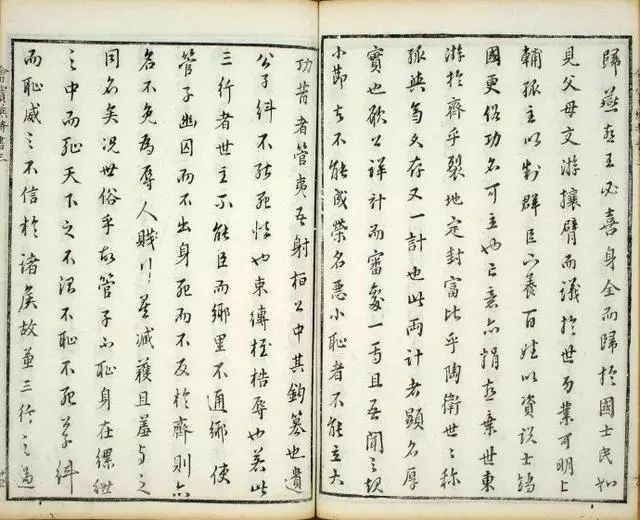 歸燕燕王必喜身全而歸於國士民如
見父母交游攘臂而議於世功業可明上
輔孤主以制群臣下養百姓以資說士矯
國更俗功名可立也亡意亦捐燕棄世東
游於齊乎裂地定封富比乎陶衛世世稱
孤與齊久存又一計也此兩計者顯名厚
實也願公詳計而審處一焉且吾聞之規
小節者不能成榮名惡小恥者不能立大
功昔者管夷吾射桓公中其鉤篡也遺
公子糾不能死怯也束縛桎梏辱也若此
三行者世主不能臣而鄉里不通鄉使
管子幽囚而不出身死而不反於齊則亦
名不免為辱人賤行矣臧獲且羞與之
同名矣況世俗乎故管子不恥身在縲紲
之中而恥天下之不治不恥不死公子糾
而恥威之不信於諸侯故兼三行之過